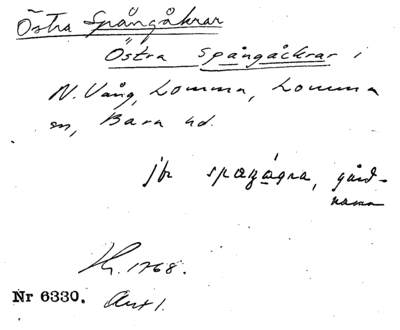 Östra Spångåkrar
Östra spångåckrar i
N. Vång, Lomma, Lomma
sn, Bara hd.
jfr spaŋågra, gård-
namn
Hr. 1768.
Nr 6330. Akt 1.